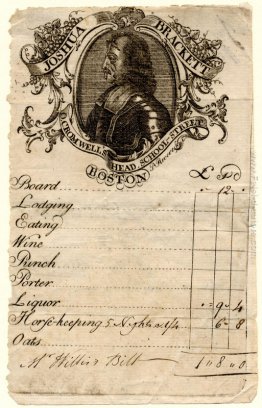 JOSHUA BRACKETT
O. CROMWELLS HEAD SCHOOL STREET
BOSTON
£ S D
Board - 12 -
Lodging
Eating
Wine
Punch
Porter
Liquor - 9 - 4
Horse-keeping 5 Nights 6 - 8
Oats
Mr Bill 1 8 0